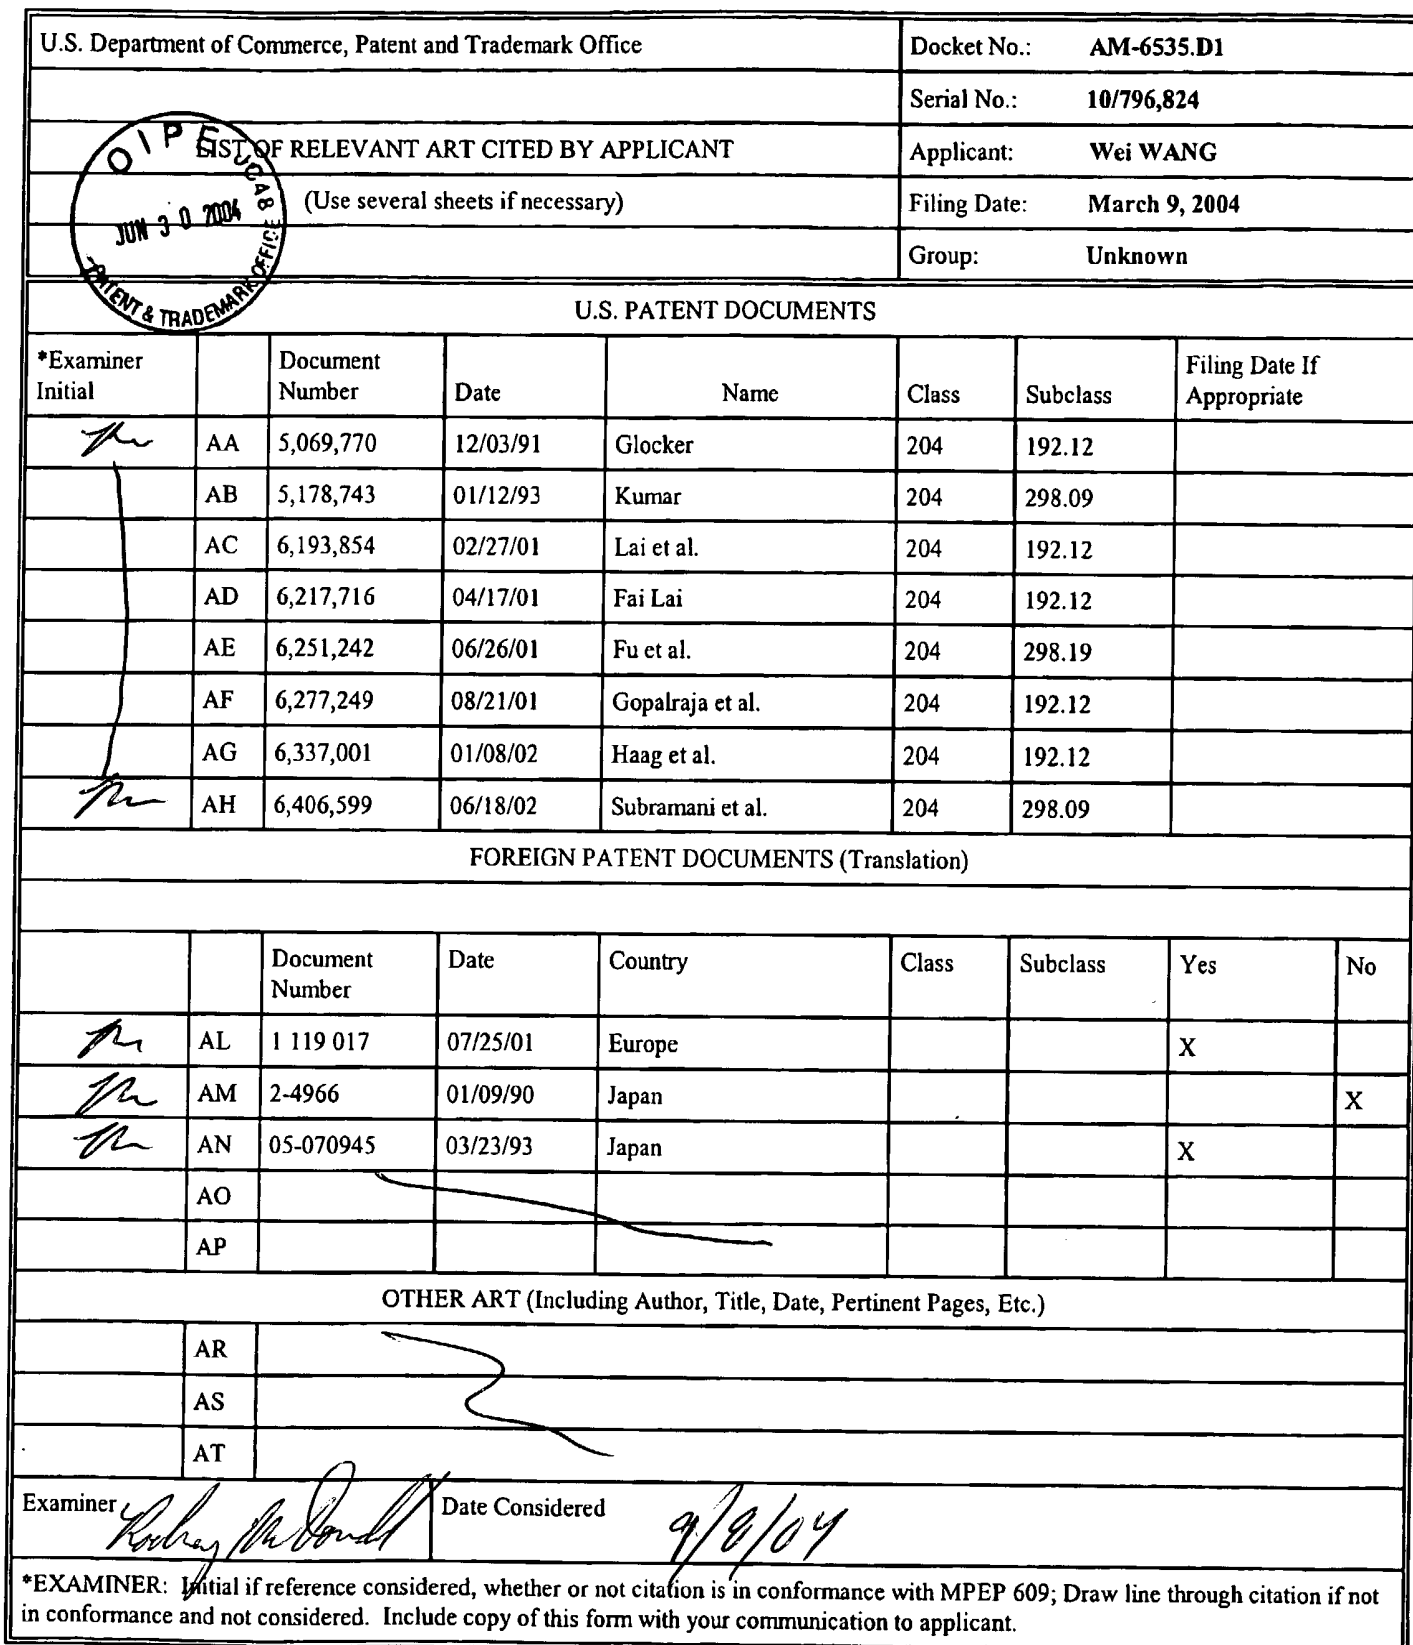 U.S. Department of Commerce, Patent and Trademark Office
Docket No.: AM-6535.D1
Serial No.: 10/796,824
LIST OF RELEVANT ART CITED BY APPLICANT
Applicant: Wei WANG
(Use several sheets if necessary)
Filing Date: March 9, 2004
Group: Unknown
OIPE JCAB
JUN 30 2004
PATENT & TRADEMARK OFFICE
U.S. PATENT DOCUMENTS
*Examiner Initial Document Number Date Name Class Subclass Filing Date If Appropriate
AA 5,069,770 12/03/91 Glocker 204 192.12
AB 5,178,743 01/12/93 Kumar 204 298.09
AC 6,193,854 02/27/01 Lai et al. 204 192.12
AD 6,217,716 04/17/01 Fai Lai 204 192.12
AE 6,251,242 06/26/01 Fu et al. 204 298.19
AF 6,277,249 08/21/01 Gopalraja et al. 204 192.12
AG 6,337,001 01/08/02 Haag et al. 204 192.12
AH 6,406,599 06/18/02 Subramani et al. 204 298.09
FOREIGN PATENT DOCUMENTS (Translation)
Document Number Date Country Class Subclass Yes No
AL 1 119 017 07/25/01 Europe X
AM 2-4966 01/09/90 Japan X
AN 05-070945 03/23/93 Japan X
AO
AP
OTHER ART (Including Author, Title, Date, Pertinent Pages, Etc.)
AR
AS
AT
Examiner Rodney McDonald Date Considered 9/8/04
*EXAMINER: Initial if reference considered, whether or not citation is in conformance with MPEP 609; Draw line through citation if not
in conformance and not considered. Include copy of this form with your communication to applicant.